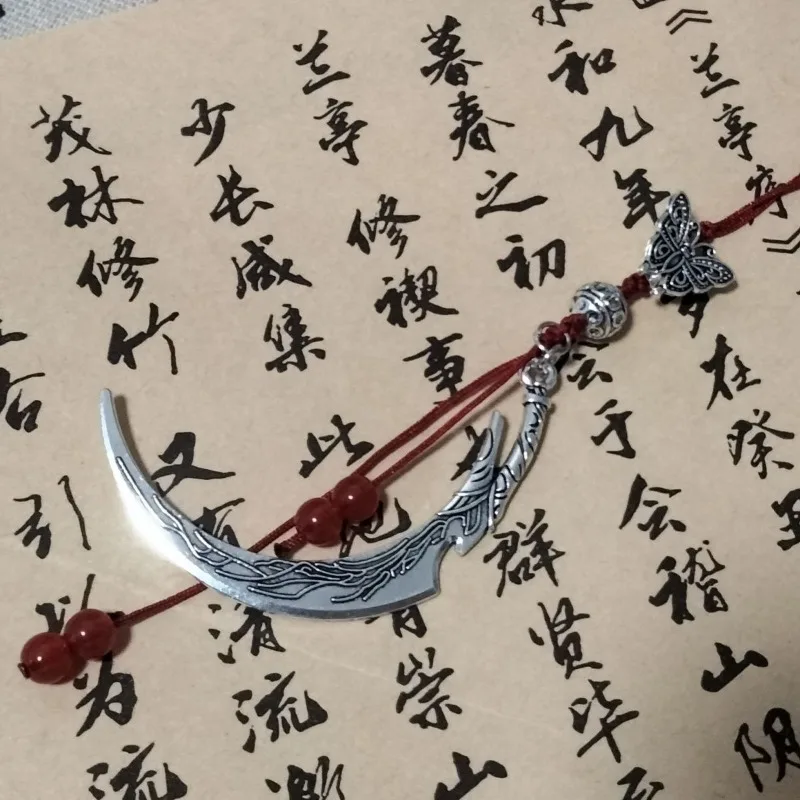 《兰亭序》
永和九年岁在癸丑
暮春之初会于会稽山阴
兰亭修禊事也群贤毕
少长咸集此地有崇山
茂林修竹又有清流激
右引以为流